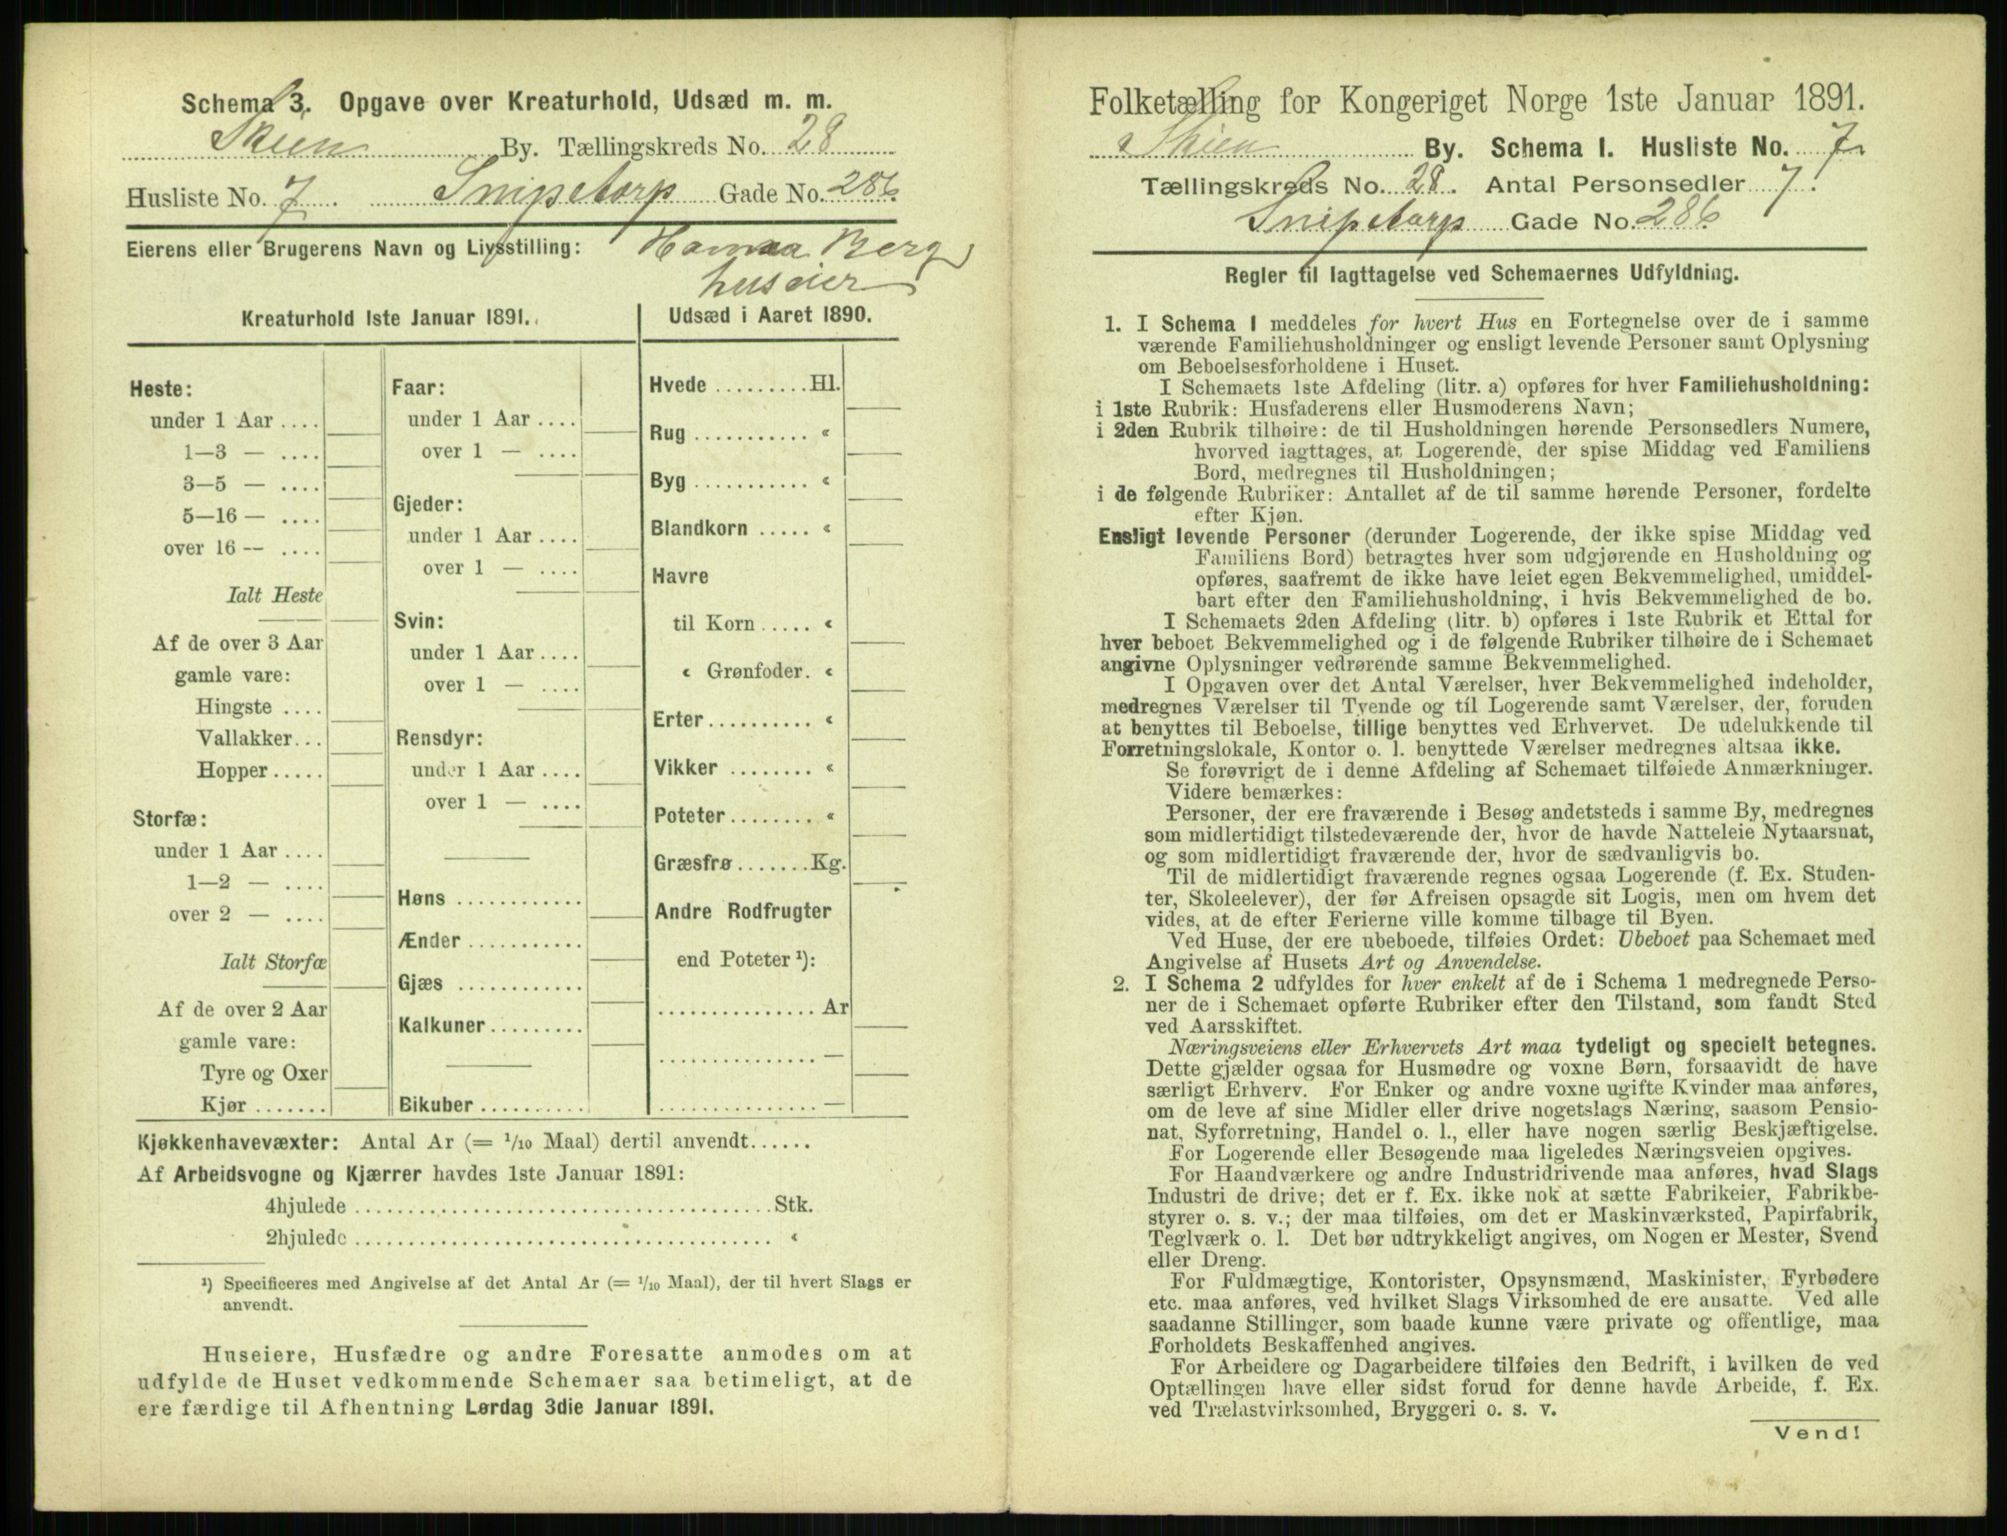 Schema 3. Opgave over Kreaturhold, Udsæd m. m.
Skien By. Tællingskreds No. 28
Husliste No. 7. Snipetorp Gade No. 286
Eierens eller Brugerens Navn og Livsstilling: Hanna Berg
huseier
Kreaturhold 1ste Januar 1891.
Heste:
under 1 Aar ....
1—3 — ....
3—5 — ....
5—16 — ....
over 16 — ....
Ialt Heste
Af de over 3 Aar
gamle vare:
Hingste ....
Vallakker...
Hopper.....
Storfæ:
under 1 Aar ....
1—2 — ....
over 2 — ....
Ialt Storfæ
Af de over 2 Aar
gamle vare:
Tyre og Oxer
Kjør .......
Faar:
under 1 Aar ....
over 1 — ....
Gjeder:
under 1 Aar ....
over 1 — ....
Svin:
under 1 Aar ....
over 1 — ....
Rensdyr:
under 1 Aar ....
over 1 — ....
Høns ............
Ænder ...........
Gjæs ............
Kalkuner.........
Bikuber ..........
Udsæd i Aaret 1890.
Hvede .........Hl.
Rug ........... «
Byg ........... «
Blandkorn ..... «
Havre
til Korn ..... «
« Grønfoder. «
Erter.......... «
Vikker ........ «
Poteter........ «
Græsfrø .......Kg.
Andre Rodfrugter
end Poteter ¹):
............... Ar
............... —
............... —
Kjøkkenhavevæxter: Antal Ar (= 1/10 Maal) dertil anvendt......
Af Arbeidsvogne og Kjærrer havdes 1ste Januar 1891:
4hjulede ........................................Stk.
2hjulede ........................................ «
¹) Specificeres med Angivelse af det Antal Ar (= 1/10 Maal), der til hvert Slags er
anvendt.
Huseiere, Husfædre og andre Foresatte anmodes om at
udfylde de Huset vedkommende Schemaer saa betimeligt, at de
ere færdige til Afhentning Lørdag 3die Januar 1891.
Folketælling for Kongeriget Norge 1ste Januar 1891.
Skien By. Schema I. Husliste No. 7
Tællingskreds No. 28. Antal Personsedler 7.
Snipetorp Gade No. 286
Regler til Iagttagelse ved Schemaernes Udfyldning.
1. I Schema 1 meddeles for hvert Hus en Fortegnelse over de i samme
værende Familiehusholdninger og ensligt levende Personer samt Oplysning
om Beboelsesforholdene i Huset.
I Schemaets 1ste Afdeling (litr. a) opføres for hver Familiehusholdning:
i 1ste Rubrik: Husfaderens eller Husmoderens Navn;
i 2den Rubrik tilhøire: de til Husholdningen hørende Personsedlers Numere,
hvorved iagttages, at Logerende, der spise Middag ved Familiens
Bord, medregnes til Husholdningen;
i de følgende Rubriker: Antallet af de til samme hørende Personer, fordelte
efter Kjøn.
Ensligt levende Personer (derunder Logerende, der ikke spise Middag ved
Familiens Bord) betragtes hver som udgjørende en Husholdning og
opføres, saafremt de ikke have leiet egen Bekvemmelighed, umiddel-
bart efter den Familiehusholdning, i hvis Bekvemmelighed de bo.
I Schemaets 2den Afdeling (litr. b) opføres i 1ste Rubrik et Ettal for
hver beboet Bekvemmelighed og i de følgende Rubriker tilhøire de i Schemaet
angivne Oplysninger vedrørende samme Bekvemmelighed.
I Opgaven over det Antal Værelser, hver Bekvemmelighed indeholder,
medregnes Værelser til Tyende og til Logerende samt Værelser, der, foruden
at benyttes til Beboelse, tillige benyttes ved Erhvervet. De udelukkende til
Forretningslokale, Kontor o. l. benyttede Værelser medregnes altsaa ikke.
Se forøvrigt de i denne Afdeling af Schemaet tilføiede Anmærkninger.
Videre bemærkes:
Personer, der ere fraværende i Besøg andetsteds i samme By, medregnes
som midlertidigt tilstedeværende der, hvor de havde Natteleie Nytaarsnat,
og som midlertidigt fraværende der, hvor de sædvanligvis bo.
Til de midlertidigt fraværende regnes ogsaa Logerende (f. Ex. Studen-
ter, Skoleelever), der før Afreisen opsagde sit Logis, men om hvem det
vides, at de efter Ferierne ville komme tilbage til Byen.
Ved Huse, der ere ubeboede, tilføies Ordet: Ubeboet paa Schemaet med
Angivelse af Husets Art og Anvendelse.
2. I Schema 2 udfyldes for hver enkelt af de i Schema 1 medregnede Perso-
ner de i Schemaet opførte Rubriker efter den Tilstand, som fandt Sted
ved Aarsskiftet.
Næringsveiens eller Erhvervets Art maa tydeligt og specielt betegnes.
Dette gjælder ogsaa for Husmødre og voxne Børn, forsaavidt de have
særligt Erhverv. For Enker og andre voxne ugifte Kvinder maa anføres,
om de leve af sine Midler eller drive nogetslags Næring, saasom Pensio-
nat, Syforretning, Handel o. l., eller have nogen særlig Beskjæftigelse.
For Logerende eller Besøgende maa ligeledes Næringsveien opgives.
For Haandværkere og andre Industridrivende maa anføres, hvad Slags
Industri de drive; det er f. Ex. ikke nok at sætte Fabrikeier, Fabrikbe-
styrer o. s. v.; der maa tilføies, om det er Maskinværksted, Papirfabrik,
Teglværk o. l. Det bør udtrykkeligt angives, om Nogen er Mester, Svend
eller Dreng.
For Fuldmægtige, Kontorister, Opsynsmænd, Maskinister, Fyrbødere
etc. maa anføres, ved hvilket Slags Virksomhed de ere ansatte. Ved alle
saadanne Stillinger, som baade kunne være private og offentlige, maa
Forholdets Beskaffenhed angives.
For Arbeidere og Dagarbeidere tilføies den Bedrift, i hvilken de ved
Optællingen have eller sidst forud for denne havde Arbeide, f. Ex.
ved Trælastvirksomhed, Bryggeri o. s. v.
Vend!